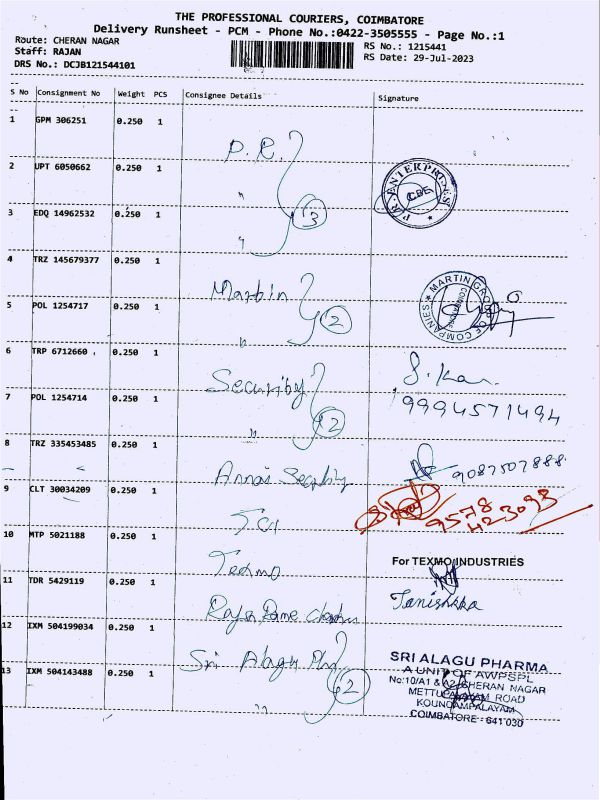 THE PROFESSIONAL COURIERS, COIMBATORE
Delivery Runsheet - PCM - Phone No.:0422-3505555 - Page No.:1
Route: CHERAN NAGAR
RS No.: 1215441
Staff: RAJAN
RS Date: 29-Jul-2023
DRS No.: DCJB121544101
S No Consignment No Weight PCS Consignee Details Signature
1 GPM 306251 0.250 1
P.R.
2 UPT 6050662 0.250 1 "
P.R. ENTERPRISES CBE
3 EDQ 14962532 0.250 1 "
3
4 TRZ 145679377 0.250 1
Martin
MARTIN GROUP OF COMPANIES COIMBATORE
5 POL 1254717 0.250 1 "
2
6 TRP 6712660 0.250 1
Security
S. Kan
7 POL 1254714 0.250 1 "
2
9994571494
8 TRZ 335453485 0.250 1
Annai
9087507888
9 CLT 30034209 0.250 1
9578
423093
10 MTP 5021188 0.250 1
Texmo
For TEXMO INDUSTRIES
11 TDR 5429119 0.250 1
Tanishkka
12 IXM 504199034 0.250 1
Sri Alagu
13 IXM 504143488 0.250 1 "
2
SRI ALAGU PHARMA
A UNIT OF AWPSPL
No:10/A1 & A2, CHERAN NAGAR
METTUPALAYAM ROAD
KOUNDAMPALAYAM
COIMBATORE - 641 030